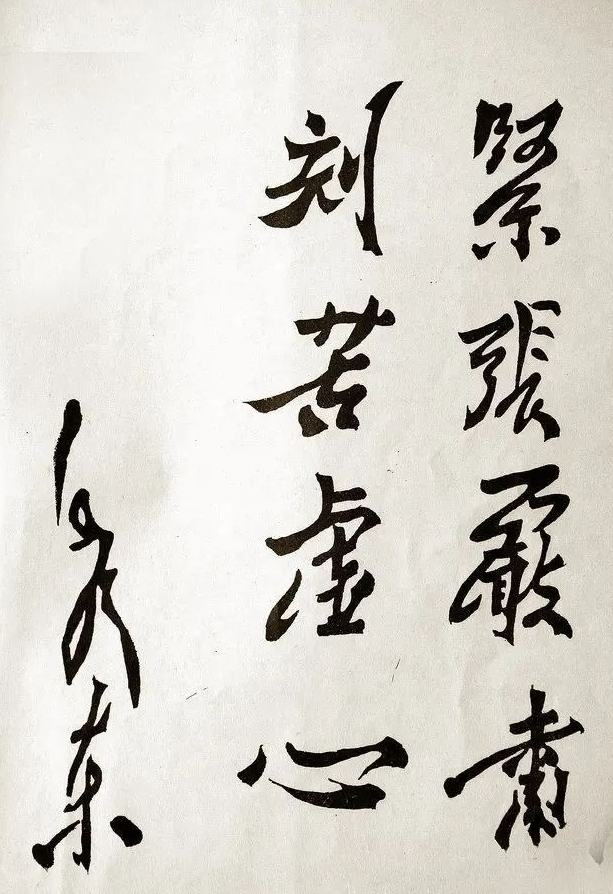 緊張嚴肅
刻苦虛心
毛澤東